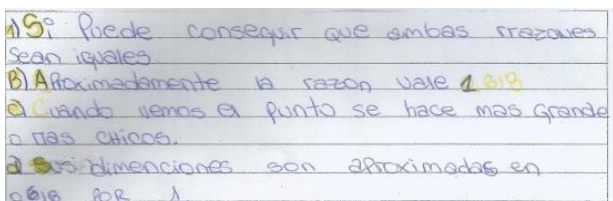 A) Si Puede conseguir que ambas rrazones
Sean iguales.
B) Aproximadamente la razon vale 1.618
C) Cuando vemos el punto se hace mas grande
o mas chicos.
d) Sus dimenciones son aproximadas en
0,618 POR 1